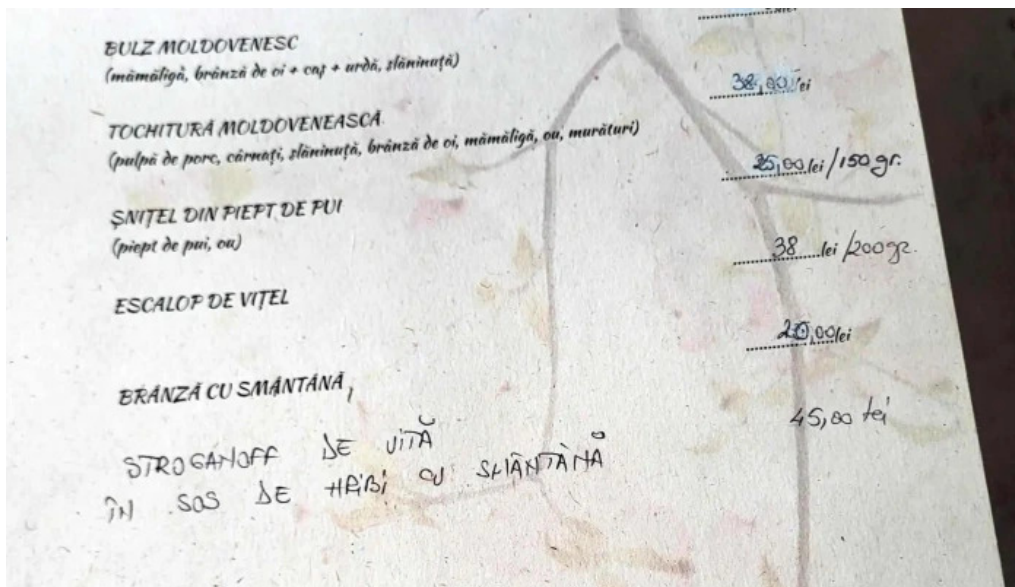 BULZ MOLDOVENESC
(mămăligă, brânză de oi + caș + urdă, slăninuță)
38,00 lei
TOCHITURĂ MOLDOVENEASCĂ
(pulpă de porc, cârnați, slăninuță, brânză de oi, mămăligă, ou, murături)
35,00 lei /150 gr.
ȘNIȚEL DIN PIEPT DE PUI
(piept de pui, ou)
38 lei /200 gr.
ESCALOP DE VIȚEL
20,00 lei
BRÂNZĂ CU SMÂNTÂNĂ
45,00 lei
STROGANOFF DE VITĂ
ÎN SOS DE HRIBI CU SMÂNTÂNĂ